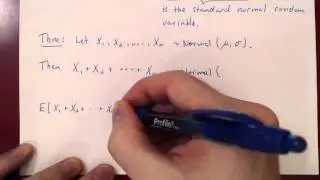 is the standard normal random
variable.
Thm: Let X₁, X₂, ..., Xₙ ~ Normal (μ, σ).
Then X₁ + X₂ + ... + Xₙ ~ Normal (
E[X₁ + X₂ + ... + X